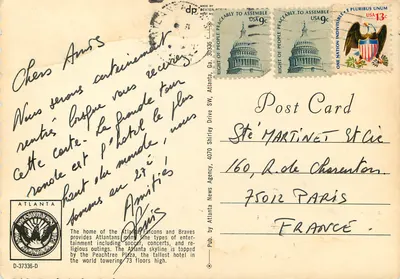 Chers Amis
Nous serons certainement
rentrés lorsque vous recevrez
cette carte. La grande tour
ronde est l'hotel le plus
haut du monde, nous
sommes au 27è !
Amitiés
ATLANTA
D-37336-D
The home of the Atlanta Falcons and Braves
provides Atlantans more fine types of enter-
tainment including soccer, concerts, and re-
ligious outings. The Atlanta skyline is topped
by the Peachtree Plaza, the tallest hotel in
the world towering 73 floors high.
Pub. by Atlanta News Agency, 4070 Shirley Drive SW, Atlanta, Ga. 30336
RIGHT OF PEOPLE PEACEABLY TO ASSEMBLE
USA 9c
RIGHT OF PEOPLE PEACEABLY TO ASSEMBLE
USA 9c
ONE NATION INDIVISIBLE E PLURIBUS UNUM
USA
13c
Post Card
Sté MARTINET et Cie
160, R. de Charenton.
75012 PARIS
FRANCE.